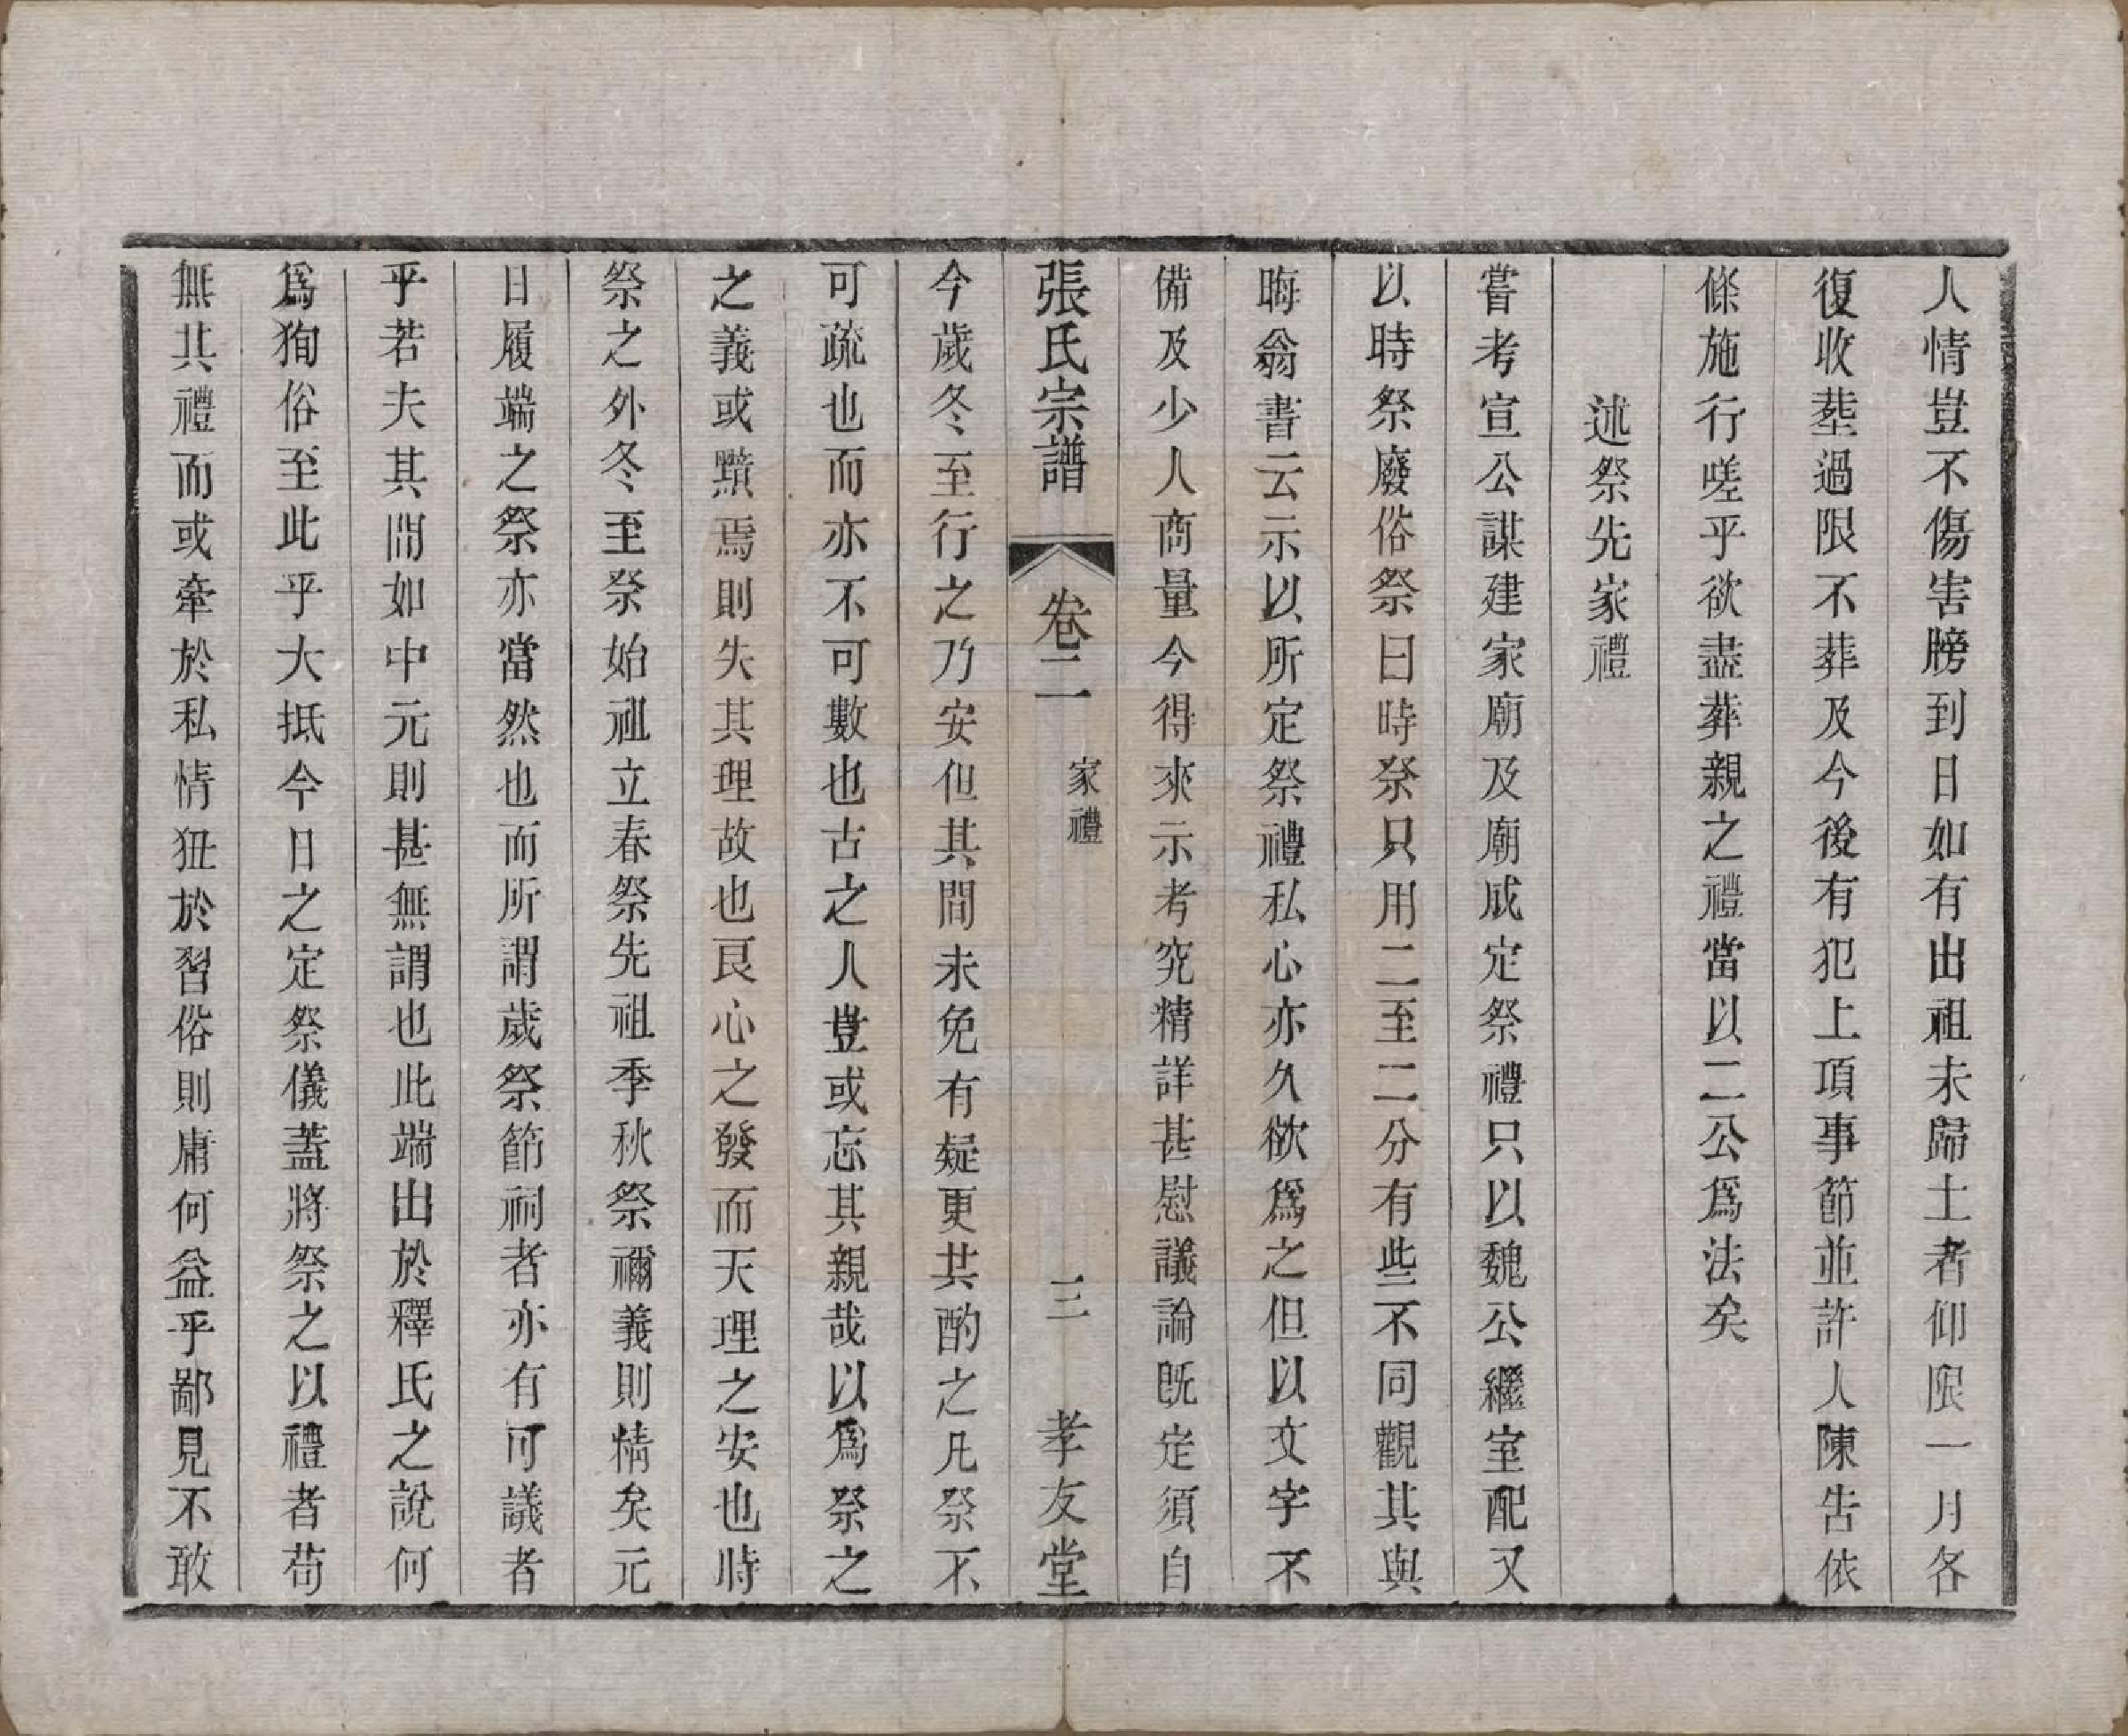 人情豈不傷害牓到日如有出祖未歸土者仰限一月各
復收塟過限不葬及今後有犯上項事節並許人陳告依
條施行嗟乎欲盡葬親之禮當以二公爲法矣
述祭先家禮
嘗考宣公謀建家廟及廟成定祭禮只以魏公繼室配又
以時祭廢俗祭曰時祭只用二至二分有些不同觀其與
晦翁書云示以所定祭禮私心亦久欲爲之但以文字不
備及少人商量今得來示考究精詳甚慰議論既定須自
張氏宗譜 卷二 家禮 三 孝友堂
今歲冬至行之乃安但其間未免有疑更共酌之凡祭不
可疏也而亦不可數也古之人豈或忘其親哉以爲祭之
之義或黷焉則失其理故也良心之發而天理之安也時
祭之外冬至祭始祖立春祭先祖季秋祭禰義則情矣元
日履端之祭亦當然也而所謂歲祭節祠者亦有可議者
乎若夫其間如中元則甚無謂也此端出於釋氏之說何
爲狥俗至此乎大抵今日之定祭儀蓋將祭之以禮者苟
無其禮而或牽於私情狃於習俗則庸何益乎鄙見不敢